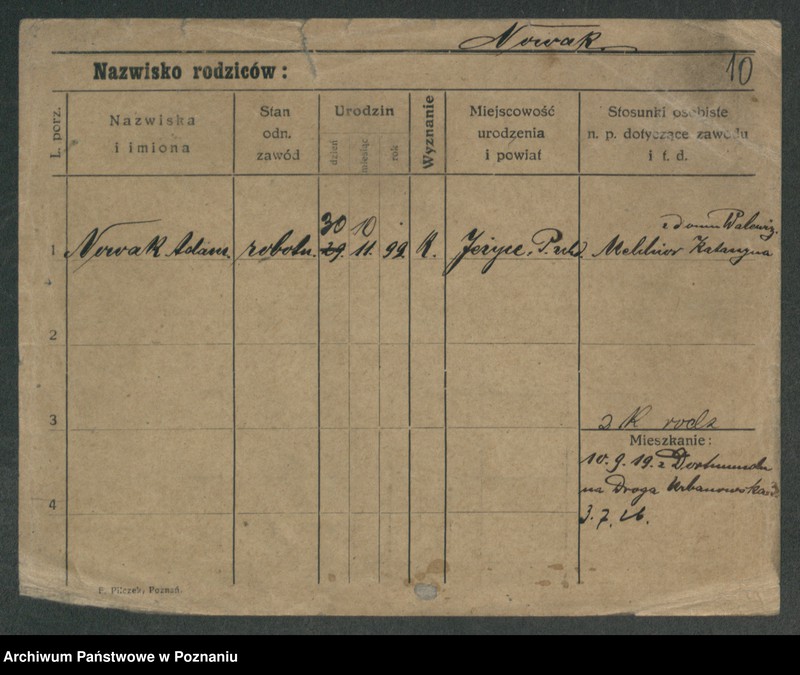 Nowak
Nazwisko rodziców:
10
L. porz.
Nazwiska
i imiona
Stan
odn.
zawód
Urodzin
dzień
miesiąc
rok
Wyznanie
Miejscowość
urodzenia
i powiat
Stosunki osobiste
n. p. dotyczące zawodu
i t. d.
30 10
z domu
1 Nowak Adam. robotn. 29. 11. 99. K. Jeżyce, P. Melchior Katarzyna
2
3
z K rodz
Mieszkanie:
10. 9. 19. z Dortmundu
na Droga Urbanowska
4
3. 7. 26.
F. Pilczek, Poznań.
Archiwum Państwowe w Poznaniu